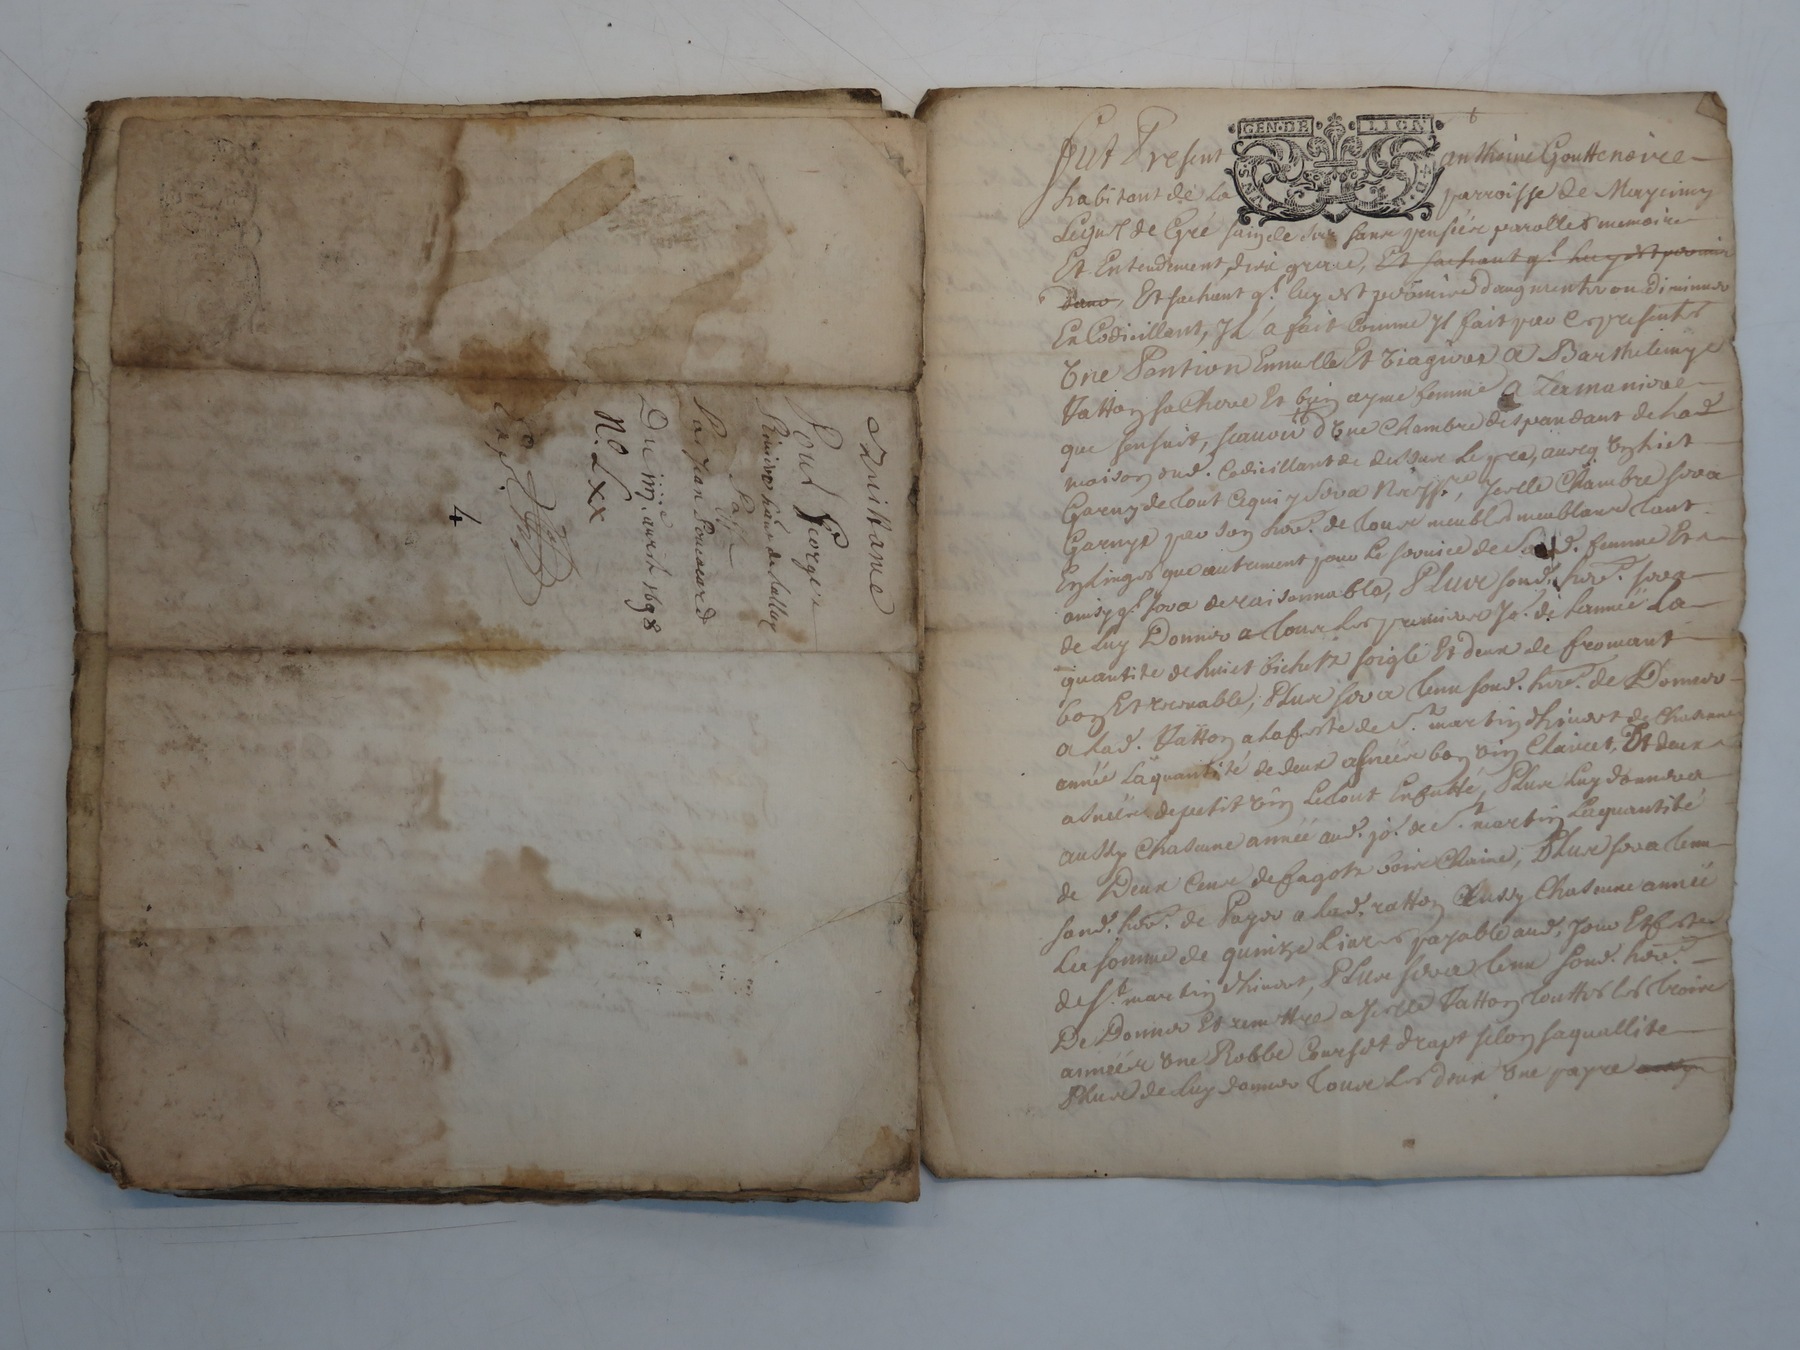 Quittance
Pour George
Rimivos
Passé
Par Jean
Du iiij.e auril 1698
N.o Lxx
4
GEN·DE LION
fut Present anthoine Gouttenoire
habitant de la parroisse de Messimy
Lequel de Gré sain de ses sans pensiée parolles memoire
Et Entendement, dieu grace, Et sachant q.l luy est permis
Et sachant q.l luy est permis d'augmenter ou diminuer
En Codicillant, Il a fait Comme Il fait par ces presentes
Une Pantion Enuelle Et viagiere a Barthelemye
Vatton sa Chere Et bien ayme femme a La maniere
que sensuit, scauoir d'Une Chambre despandant de la d.
maison aud. Codicillant de dessure Le pre, aueq Un liet
Garny de tout Ce qui y sera Ness.re, Icelle Chambre sera
Garnye par son her. de tous meubles meublans tant
En linges que autrement pour Le seruice de Sad. femme Et
ainsy q.l sera de raisonnable, Plus sond. her. sera
de luy Donner a tous Les premiers Jo. de Lannée La
quantite de huict bichetz soigle Et deux de fromant
bon Et receuable, Plus sera tenu sond. her. de Donner
a lad. Vatton a la feste de S.t martin d'hiuert de Chacune
année La quantité de deux asnées bon vin Clairet, Et deux
asnées de petit vin Le tout Enfutté, Plus Luy donnera
aussy Chacune année aud. jo. de S.t martin La quantité
de Deux Cens de fagotz bois Chaine, Plus sera tenu
sond. her. de Payer a lad. vatton Aussy Chacune année
La somme de quinze Liures payable aud. Jour Et feste
de S.t martin d'hiuert, Plus sera tenu sond. her.
De Donner Et remettre a Icelle Vatton touttes les trois
années Une Robbe Courset drapt selon sa quallite
Plus de Luy donner tous Les deux Une payre